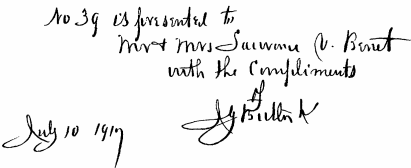 No 39 is presented to
Mr & Mrs V. Benet
with the Compliments
of
July 10 1917